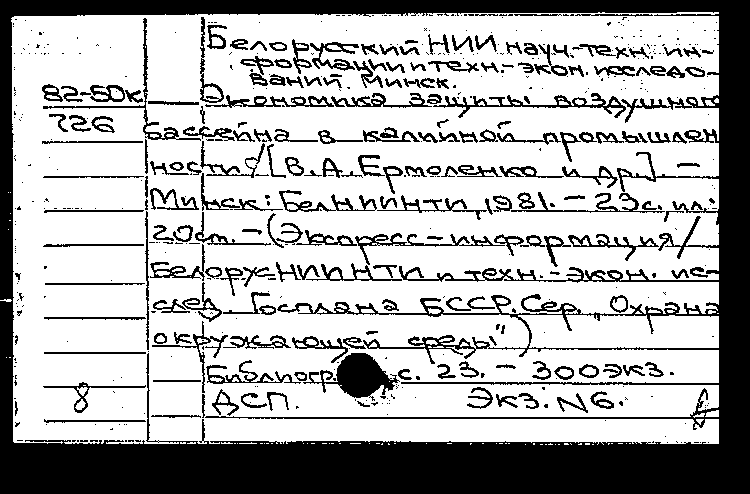 Белорусский НИИ науч.-техн. ин-
формации и техн.-экон. исследо-
ваний. Минск.
82-50к Экономика защиты воздушного
726 бассейна в калийной промышлен
ности /[В.А. Ермоленко и др.]. —
Минск: БелНИИНТИ, 1981. — 23с., ил.;
20см. — (Экспресс-информация /
БелорусНИИНТИ и техн.-экон. ис-
след. Госплана БССР. Сер. „Охрана
окружающей среды")
Библиогр. с. 23. — 300экз.
8 ДСП. Экз. N6.